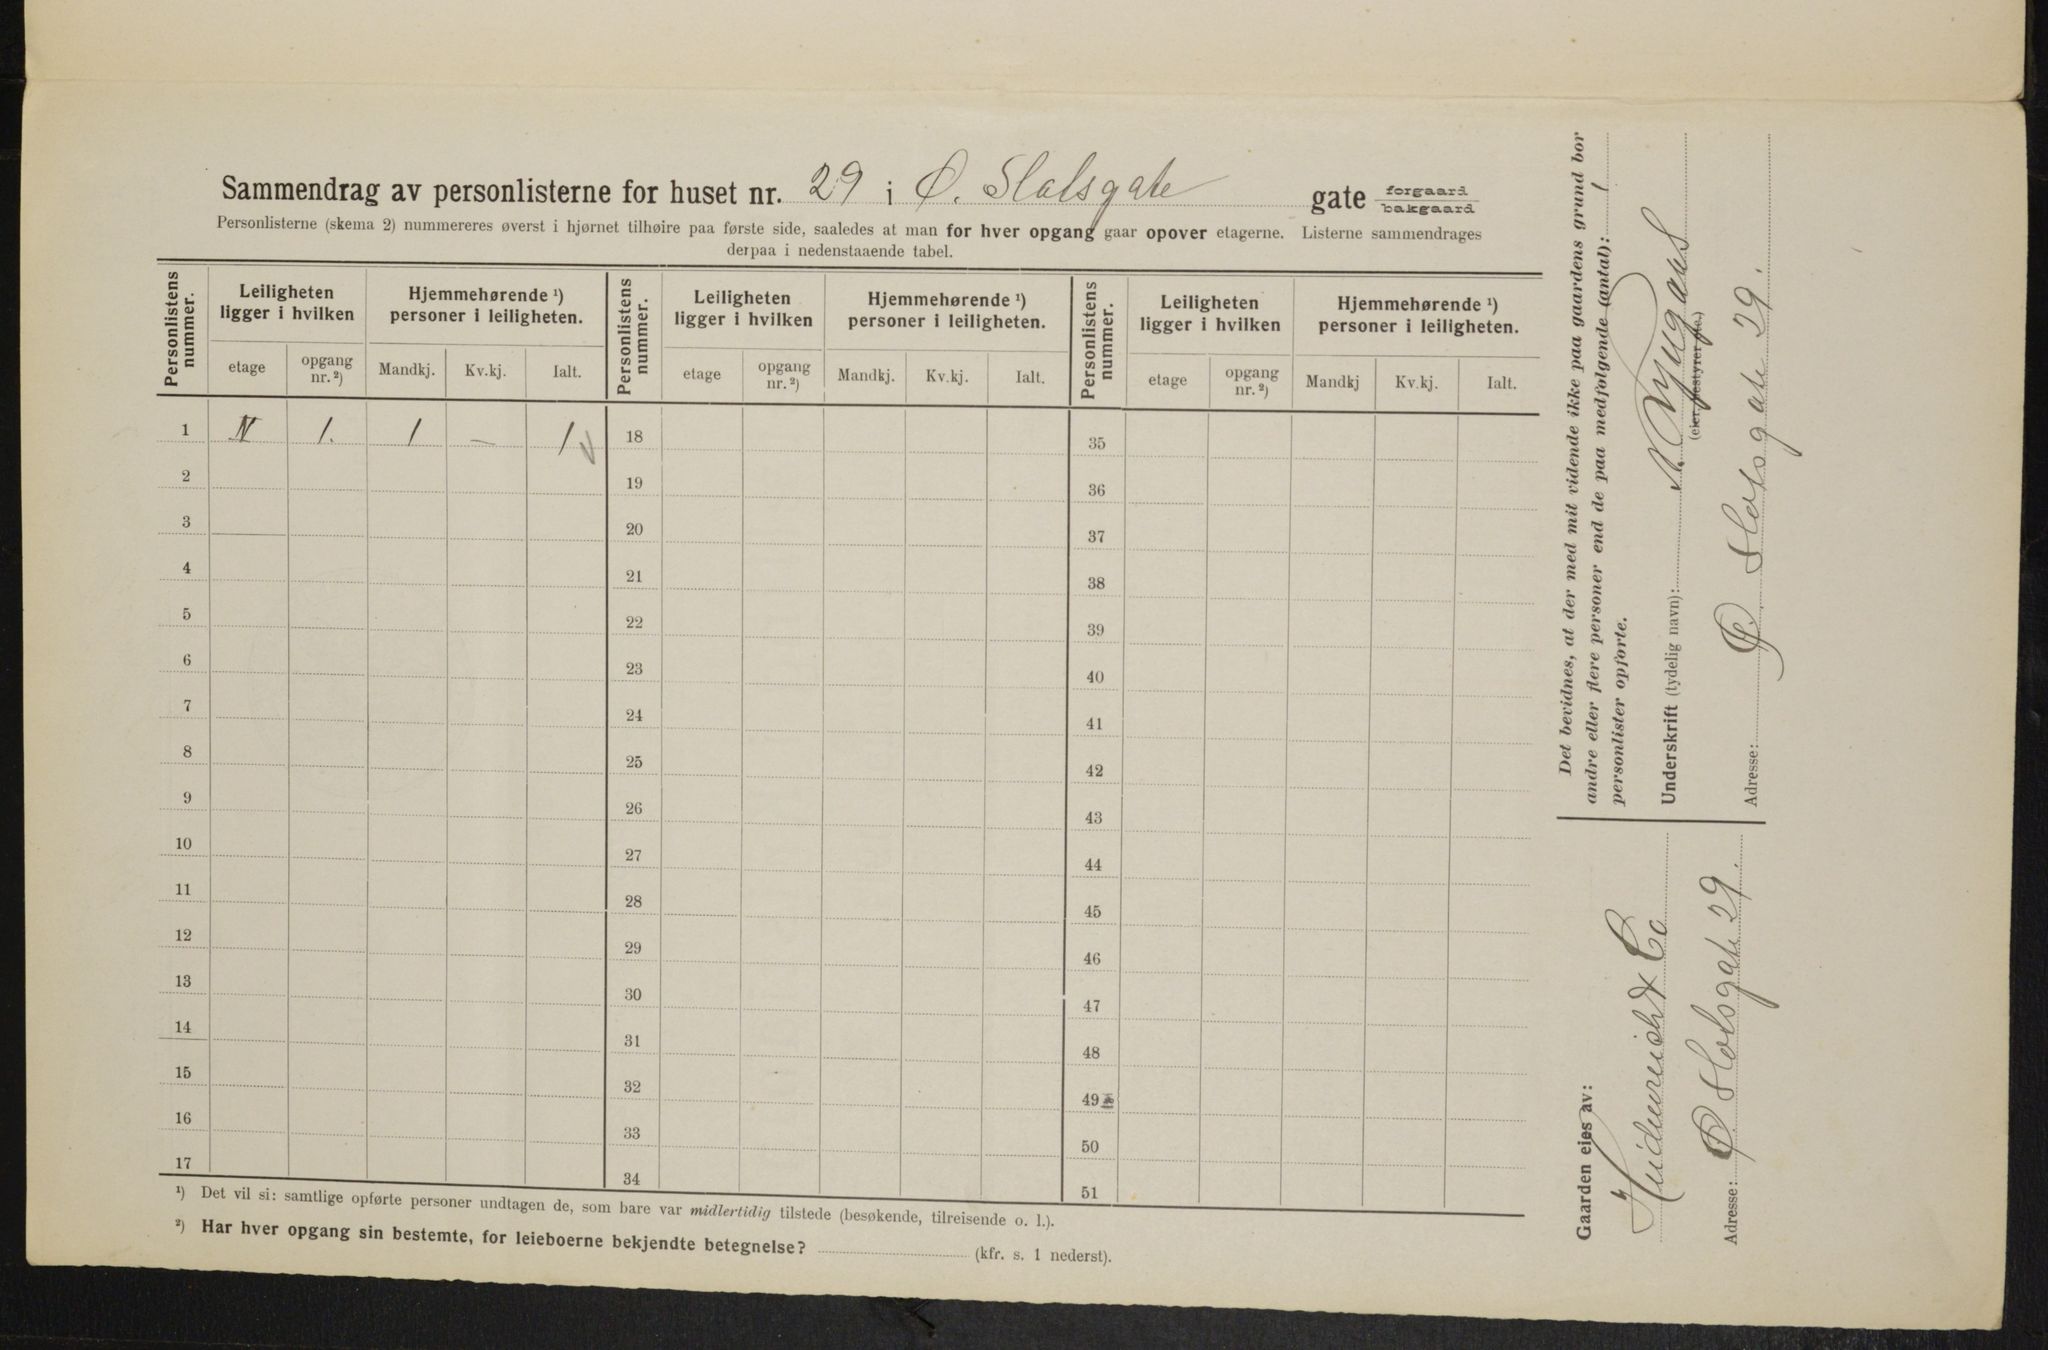 Sammendrag av personlisterne for huset nr. 29 i Ø. Slotsgate gate forgaard bakgaard
Personlisterne (skema 2) nummereres øverst i hjørnet tilhøire paa første side, saaledes at man for hver opgang gaar opover etagerne. Listerne sammendrages
derpaa i nedenstaaende tabel.
Personlistens nummer. Leiligheten ligger i hvilken Hjemmehørende ¹) personer i leiligheten. Personlistens nummer. Leiligheten ligger i hvilken Hjemmehørende ¹) personer i leiligheten. Personlistens nummer. Leiligheten ligger i hvilken Hjemmehørende ¹) personer i leiligheten.
etage opgang nr. ²) Mandkj. Kv.kj. Ialt. etage opgang nr. ²) Mandkj. Kv.kj. Ialt. etage opgang nr. ²) Mandkj Kv.kj. Ialt.
1 IV 1. 1 — 1 18 35
2 19 36
3 20 37
4 21 38
5 22 39
6 23 40
7 24 41
8 25 42
9 26 43
10 27 44
11 28 45
12 29 46
13 30 47
14 31 48
15 32 49
16 33 50
17 34 51
¹) Det vil si: samtlige opførte personer undtagen de, som bare var midlertidig tilstede (besøkende, tilreisende o. l.).
²) Har hver opgang sin bestemte, for leieboerne bekjendte betegnelse? (kfr. s. 1 nederst).
Det bevidnes, at der med mit vidende ikke paa gaardens grund bor
andre eller flere personer end de paa medfølgende (antal): 1
personlister opførte.
Underskrift (tydelig navn):
(eier, bestyrer etc.)
Adresse: Ø. Slotsgate 29.
Gaarden eies av:
Heidenreich & Co
Adresse: Ø Slotsgate 29.